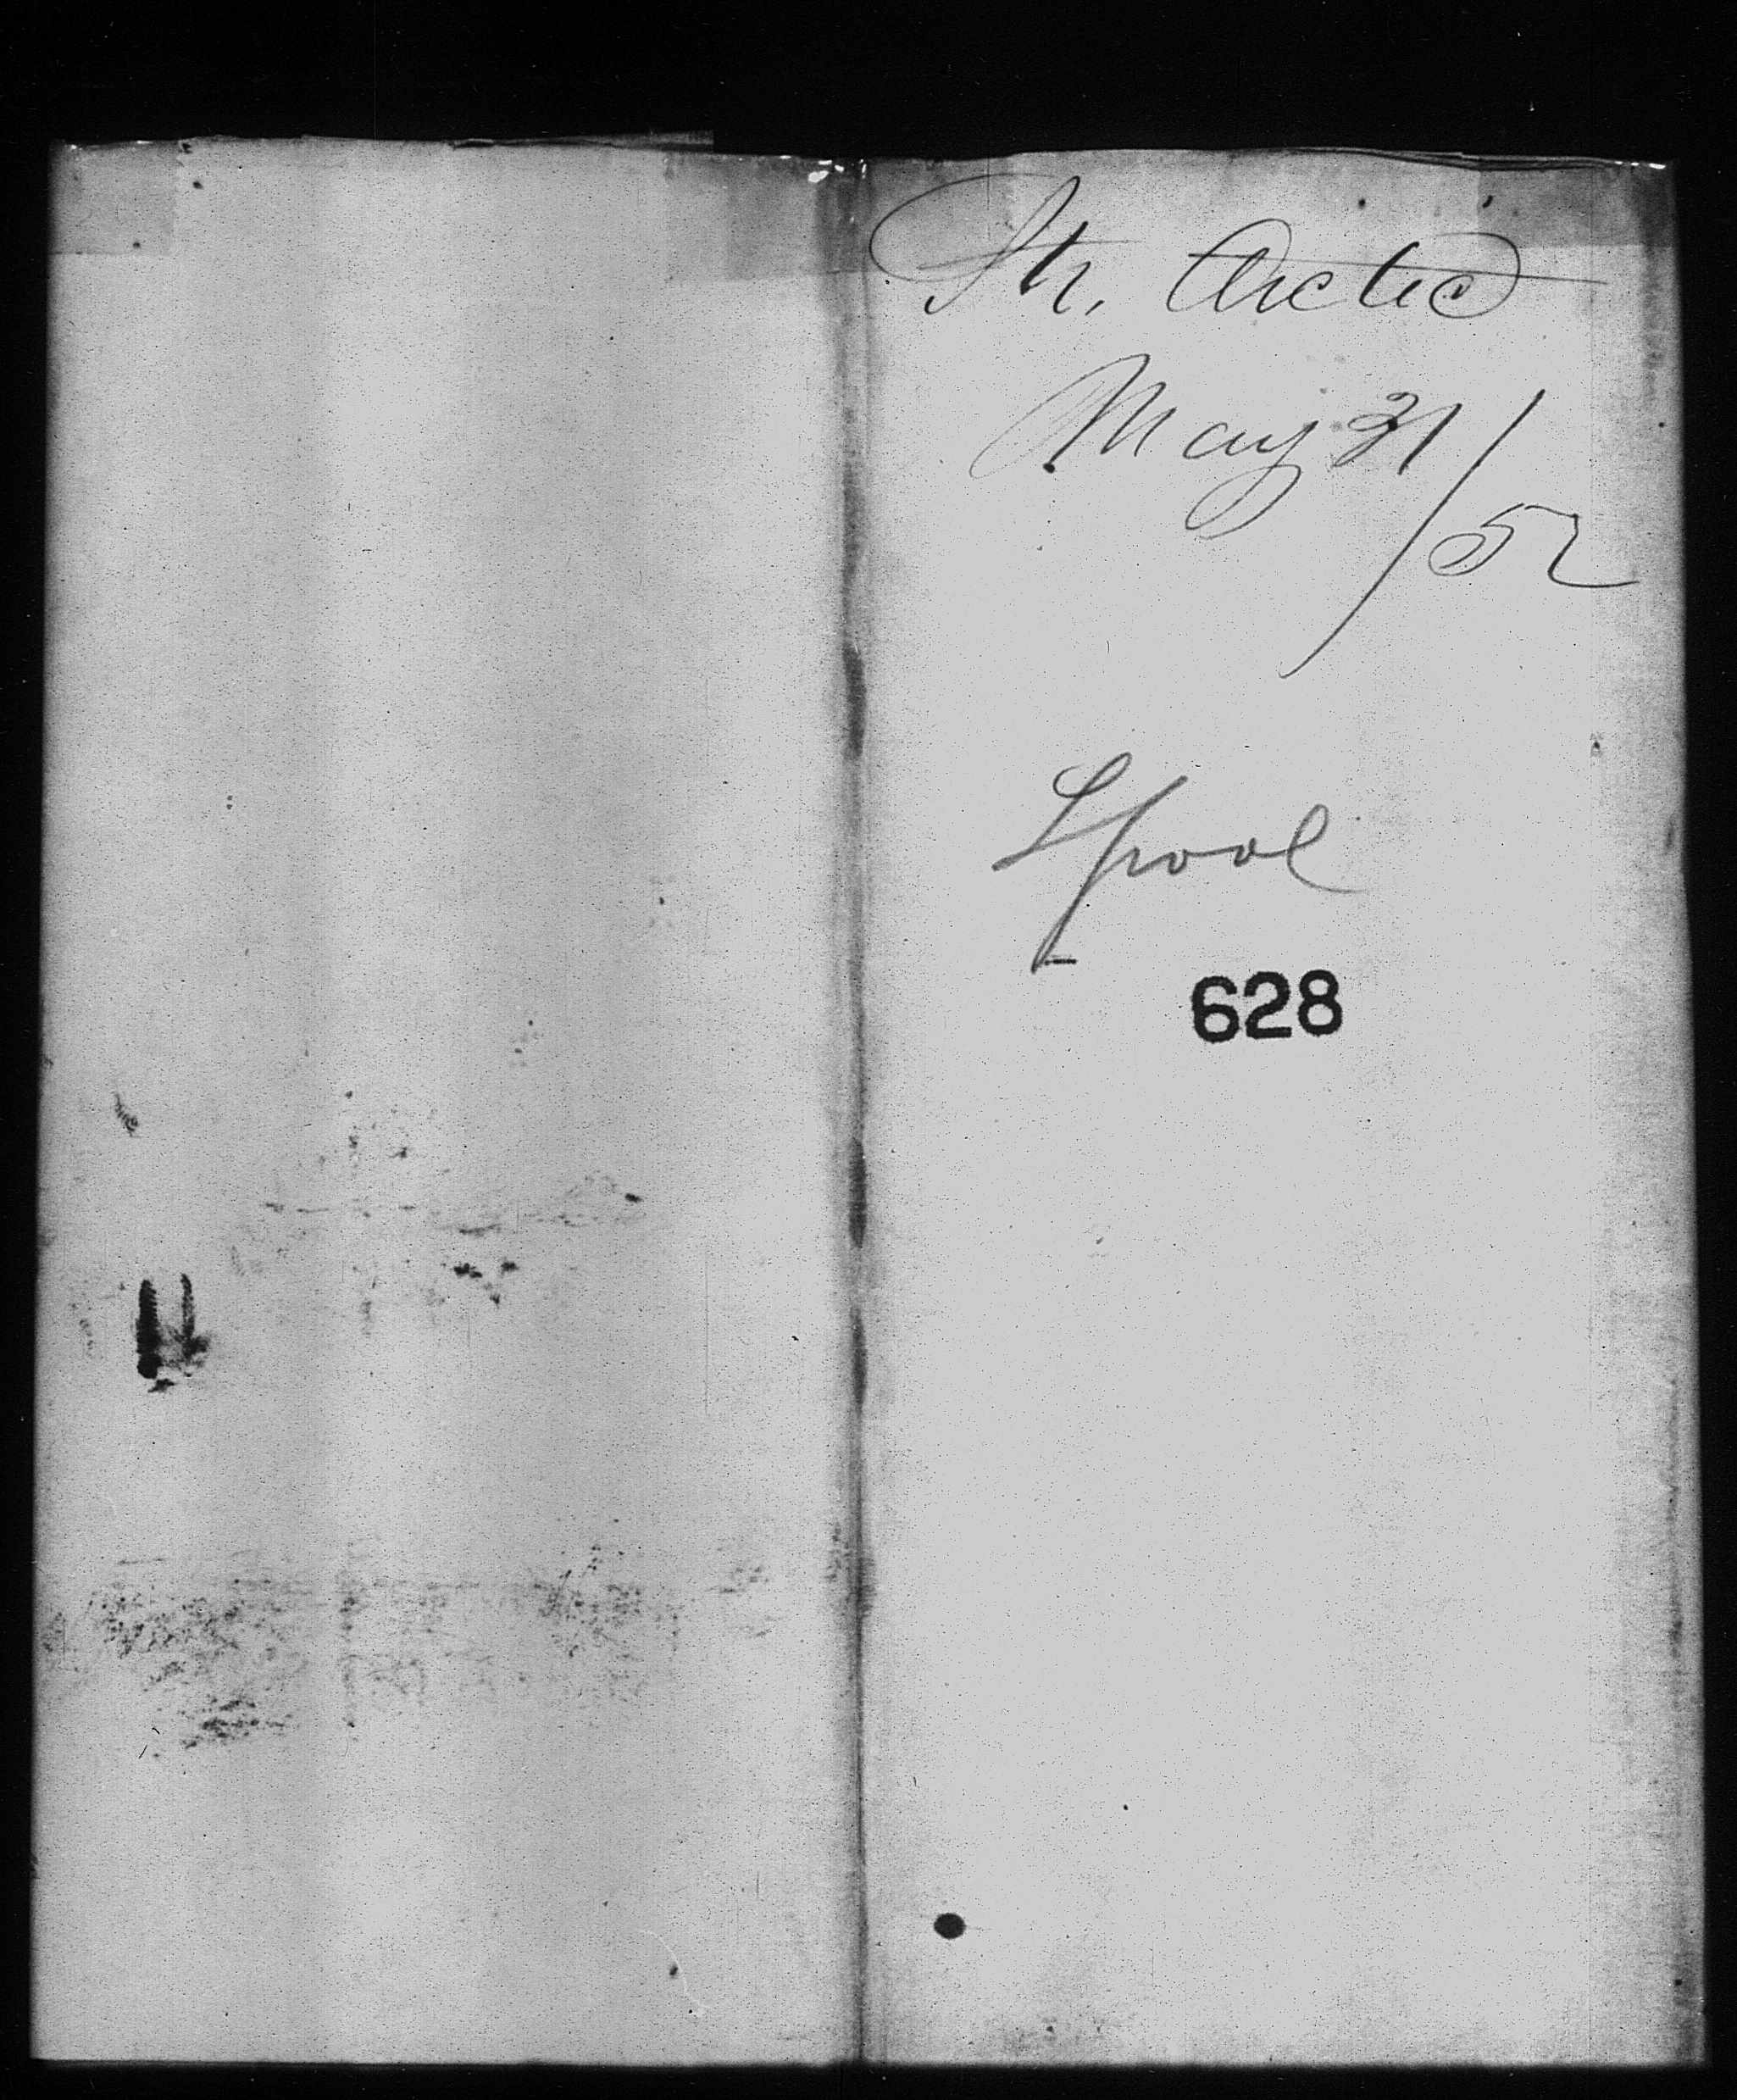 Str. Arctic
May 31/52
Lpool
628